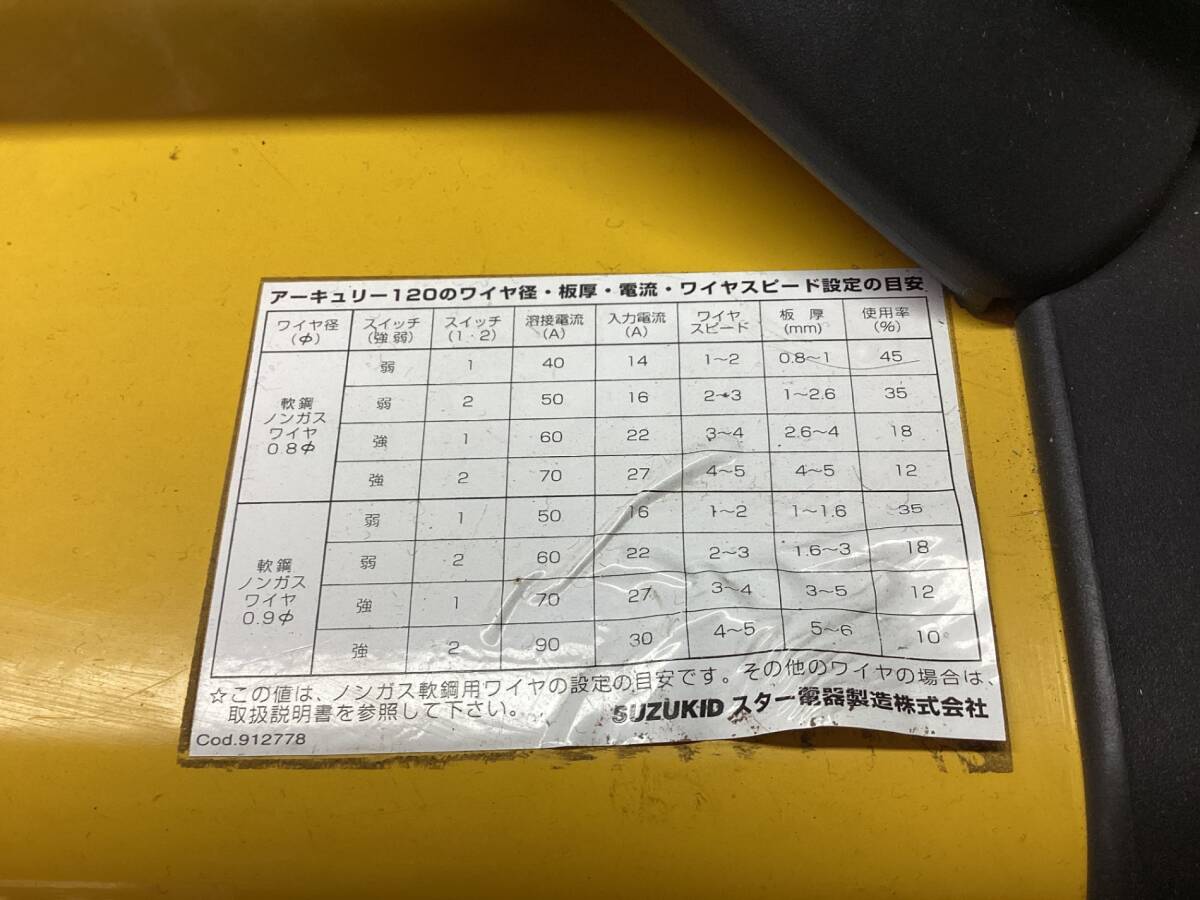 アーキュリー120のワイヤ径・板厚・電流・ワイヤスピード設定の目安
ワイヤ径(φ) スイッチ(強弱) スイッチ(1・2) 溶接電流(A) 入力電流(A) ワイヤスピード 板厚(mm) 使用率(%)
軟鋼ノンガスワイヤ0.8φ 弱 1 40 14 1〜2 0.8〜1 45
弱 2 50 16 2〜3 1〜2.6 35
強 1 60 22 3〜4 2.6〜4 18
強 2 70 27 4〜5 4〜5 12
軟鋼ノンガスワイヤ0.9φ 弱 1 50 16 1〜2 1〜1.6 35
弱 2 60 22 2〜3 1.6〜3 18
強 1 70 27 3〜4 3〜5 12
強 2 90 30 4〜5 5〜6 10
☆この値は、ノンガス軟鋼用ワイヤの設定の目安です。その他のワイヤの場合は、
取扱説明書を参照して下さい。
SUZUKID スター電器製造株式会社
Cod.912778